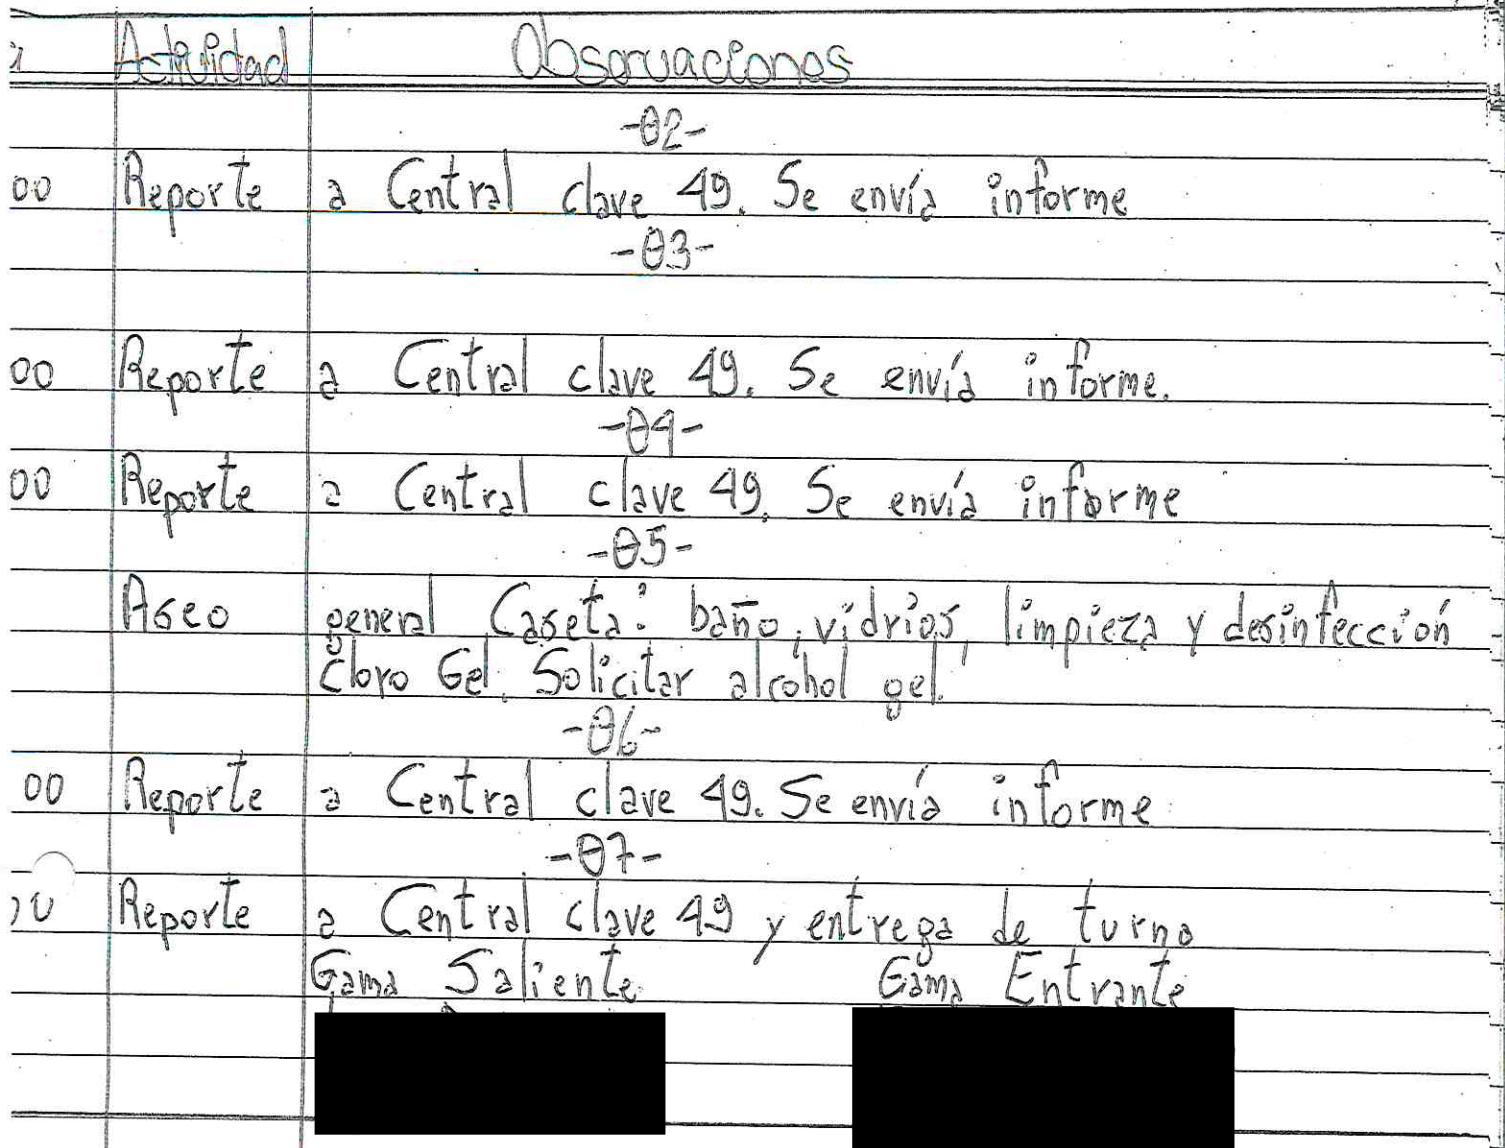 a Actividad Observaciones
-02-
00 Reporte a Central clave 49. Se envía informe
-03-
00 Reporte a Central clave 49. Se envía informe.
-04-
00 Reporte a Central clave 49. Se envía informe
-05-
Aseo general Caseta: baño, vidrios, limpieza y desinfección
cloro Gel. Solicitar alcohol gel.
-06-
00 Reporte a Central clave 49. Se envía informe
-07-
00 Reporte a Central clave 49 y entrega de turno
Gama Saliente Gama Entrante